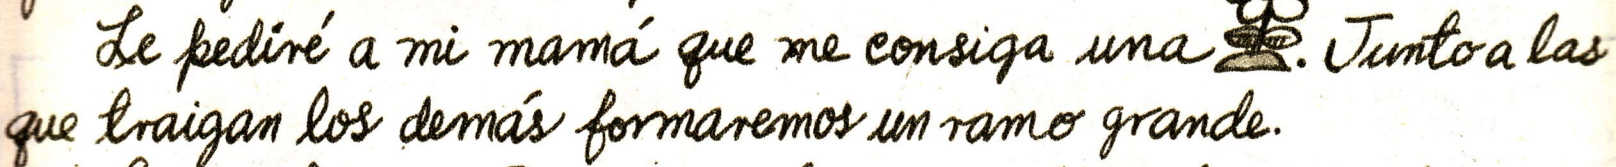 Le pediré a mi mamá que me consiga una . Junto a las
que traigan los demás formaremos un ramo grande.